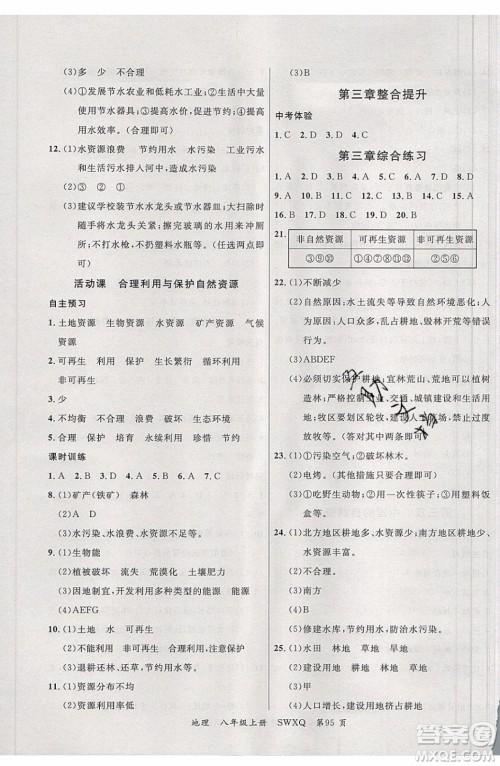 (3)多　少　不合理
(4)①发展节水农业和低耗水工业；②生活中大量
使用节水器具；③提高水价，促进节约；④提高
用水效率。(合理即可)
12.(1)水资源浪费　节约用水　水污染　工业污水
和生活污水排入河中，造成水污染。
(2)C
(3)建议学校装节水水龙头或水龙头坏了及时更换；
随手随手将水龙头关紧；擦完玻璃的水用来冲厕
所。
活动课　合理利用与保护自然资源
自主预习
1.土地资源　生物资源　水资源　矿产资源　气候
资源
2.可再生　利用　保护　生长繁衍　循环利用
非可再生
3.少
4.不均衡　不合理　浪费　破坏　生态环境
5.有限　合理利用　永续利用　珍惜　节约
课时训练
1.A　2.B　3.A　4.B　5.D　6.D　7.C
8.(1)矿产(铁矿)　森林
(2)A　D
(3)水污染、水资源浪费、水资源分布不均等。
9.(1)生物能
(2)植被破坏　流失　荒漠化　土壤肥力
(3)因地制宜，开发利用多种类型的能源
(4)AEFG
10.(1)土地　水　可再生
(2)不能无限利用　可再生　合理利用，注意保护
(3)退耕还林、还草，节约用水等。
11.(1)资源分布不均
(3)B
第三章整合提升
中考体验
1.C　2.D　3.D　4.C
第三章综合练习
1.A　2.D　3.D　4.A　5.C　6.C　7.D　8.B
9.A　10.A　11.A　12.C　13.D　14.C　15.B
16.B　17.C　18.D　19.D　20.B
21.
非自然资源　可再生资源　非可再生资源
③⑨⑩　①④⑦⑧　②⑤⑥
22.(1)不断减少
(2)自然原因：水土流失等导致自然环境恶化。人为
原因：人口猛增，乱占耕地，毁林开荒等。
(3)ABDEF
(4)必须切实保护耕地；宜林荒山、荒地可以植树造
林；严格控制工业、交通、城镇建设占地，节约用
地；牧区要划区轮牧，禁止毁林开荒；提倡
等。(答对其中两条即可)
23.(1)①污染空气；②破坏林木。
(2)电烤。(其他措施只要合理即可)
(3)①吃野生动物；②使用一次性筷子；③使用塑料
饭盒。
24.(1)北方地区耕地多、水资源少；南方地区耕地少、
水资源丰富。
(2)不合理。
(3)南方
(4)B
(5)修建水库，节约用水，防止水污染。
25.(1)水田　林地　草地　旱地
(2)建设用地　耕地　林地　草地
(3)建设用地　草地
地理　八年级上册　SWXQ　第95页
答案圈